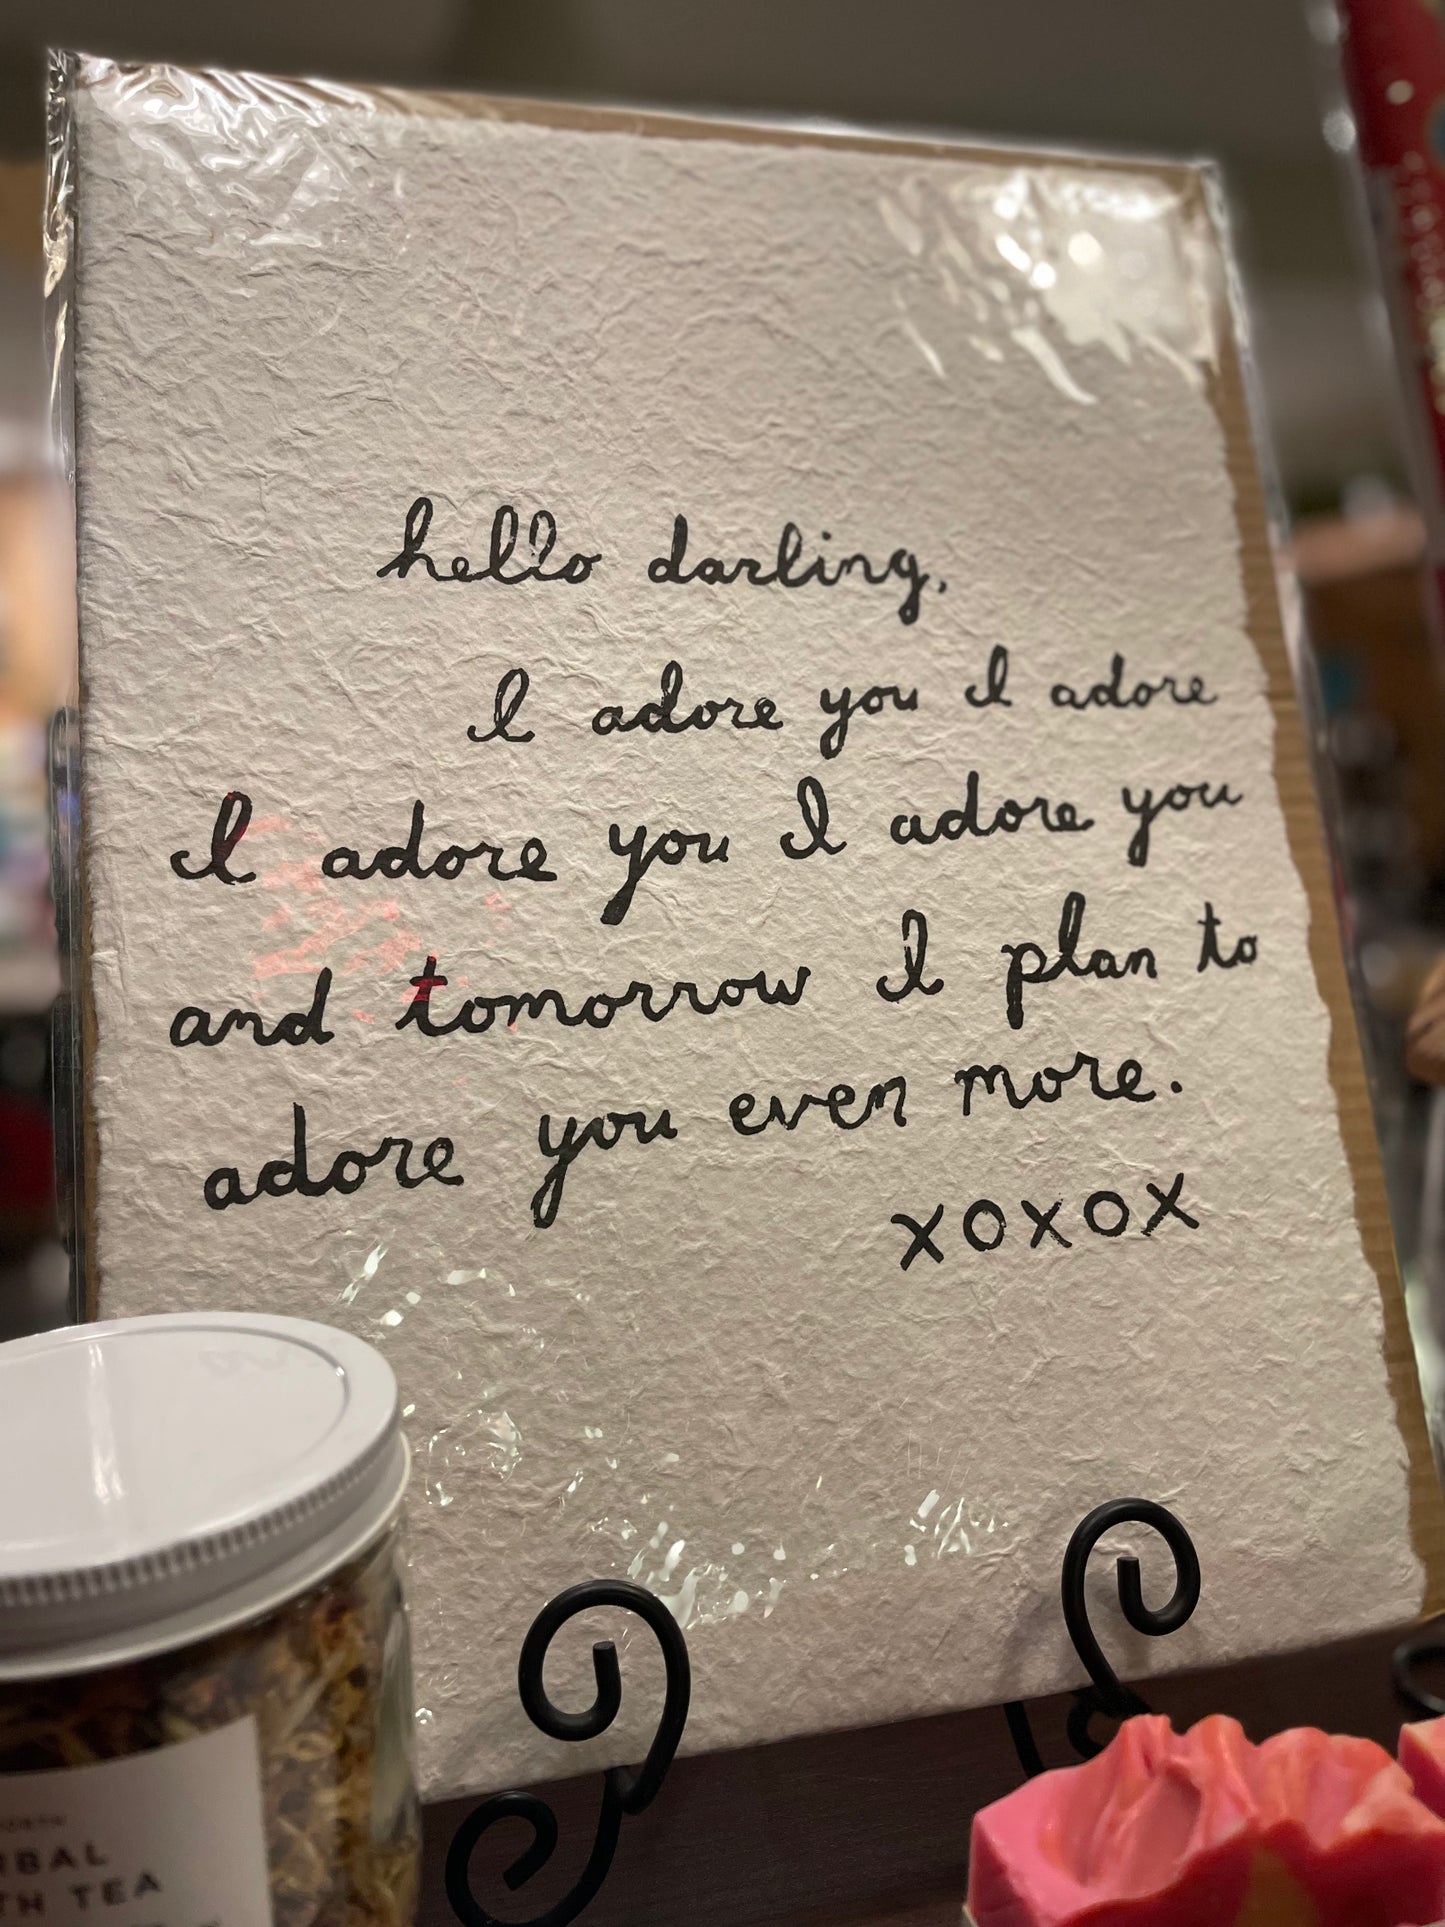 hello darling,
I adore you I adore
I adore you I adore you
and tomorrow I plan to
adore you even more.
xoxox
TEA